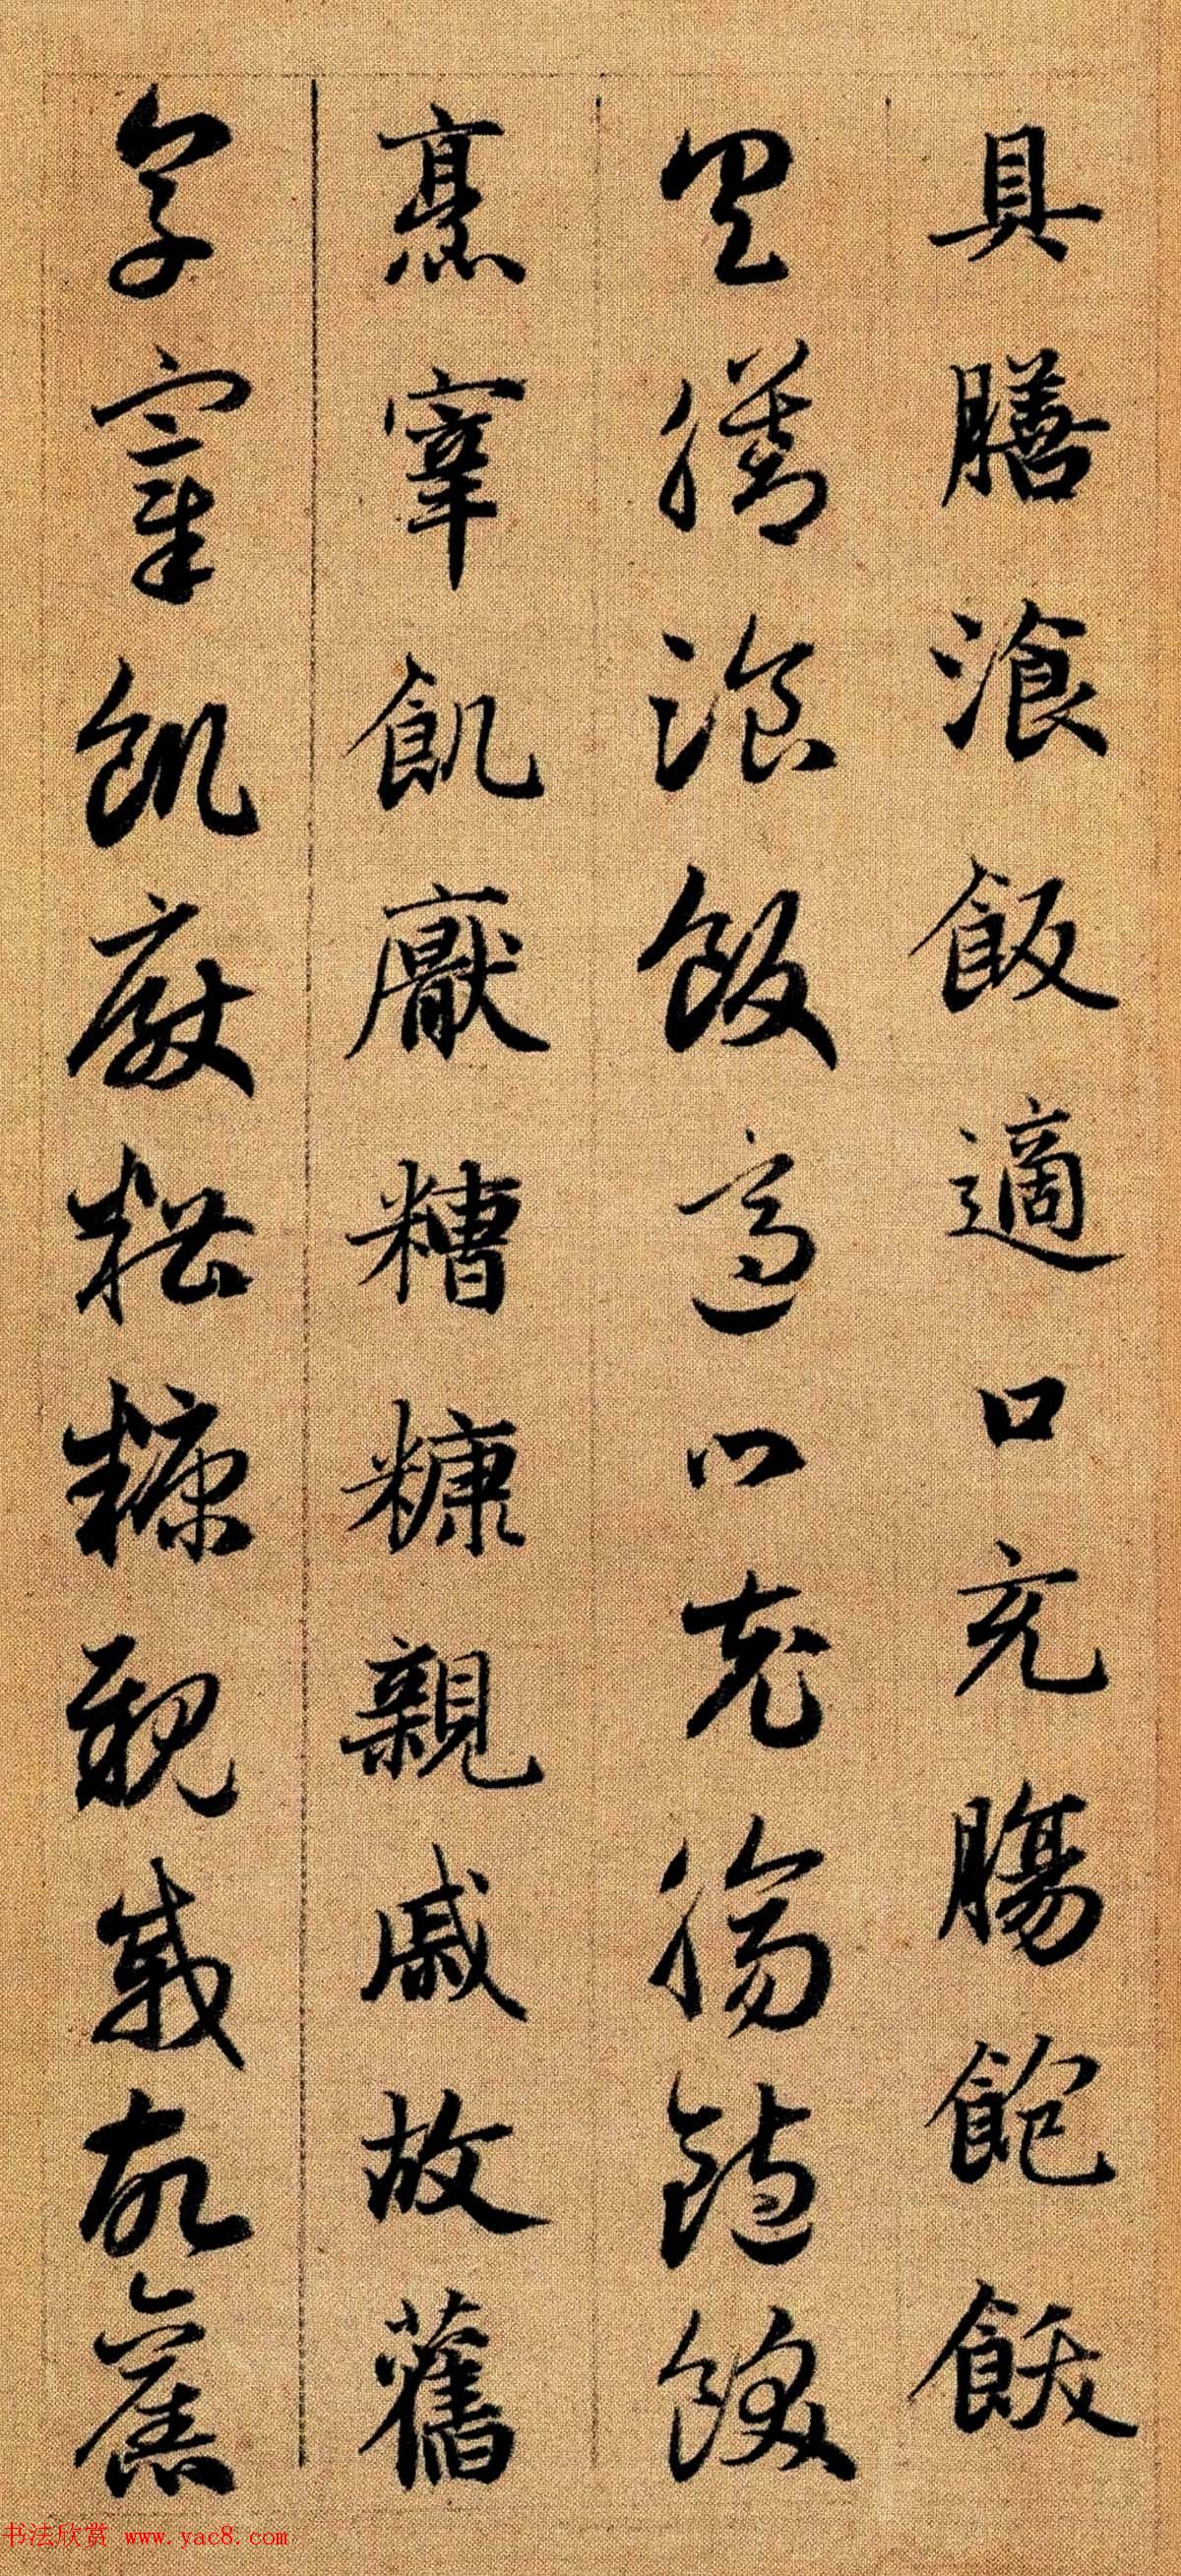 具膳飡飯適口充腸飽飫
具膳飡飯適口充腸飽飫
烹宰飢厭糟糠親戚故舊
烹宰飢厭糟糠親戚故舊
书法欣赏 www.yac8.com